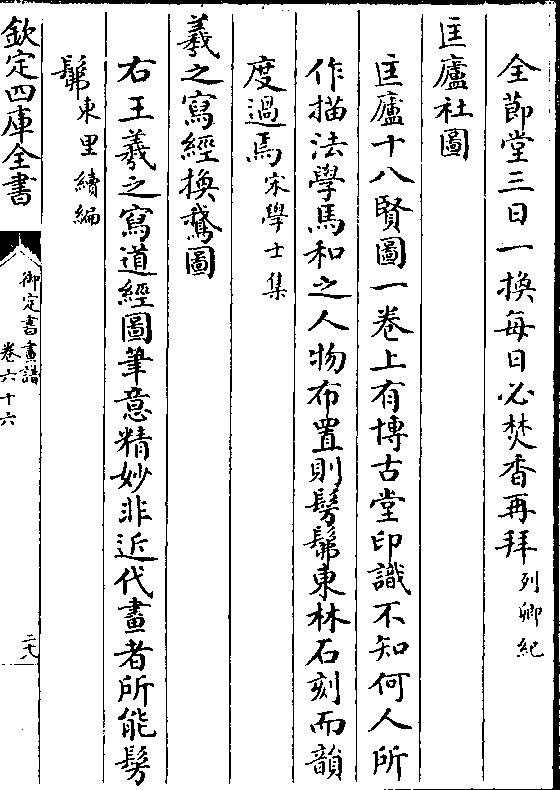 全節堂三日一換每日必焚香再拜列卿紀
匡廬社圖
匡廬十八賢圖一卷上有博古堂印識不知何人所
作描法學馬和之人物布置則髣髴東林石刻而韻
度過焉宋學士集
羲之寫經換鵞圖
右王羲之寫道經圖筆意精妙非近代畫者所能髣
髴東里續編
欽定四庫全書
御定書畫譜
卷六十六
二十八